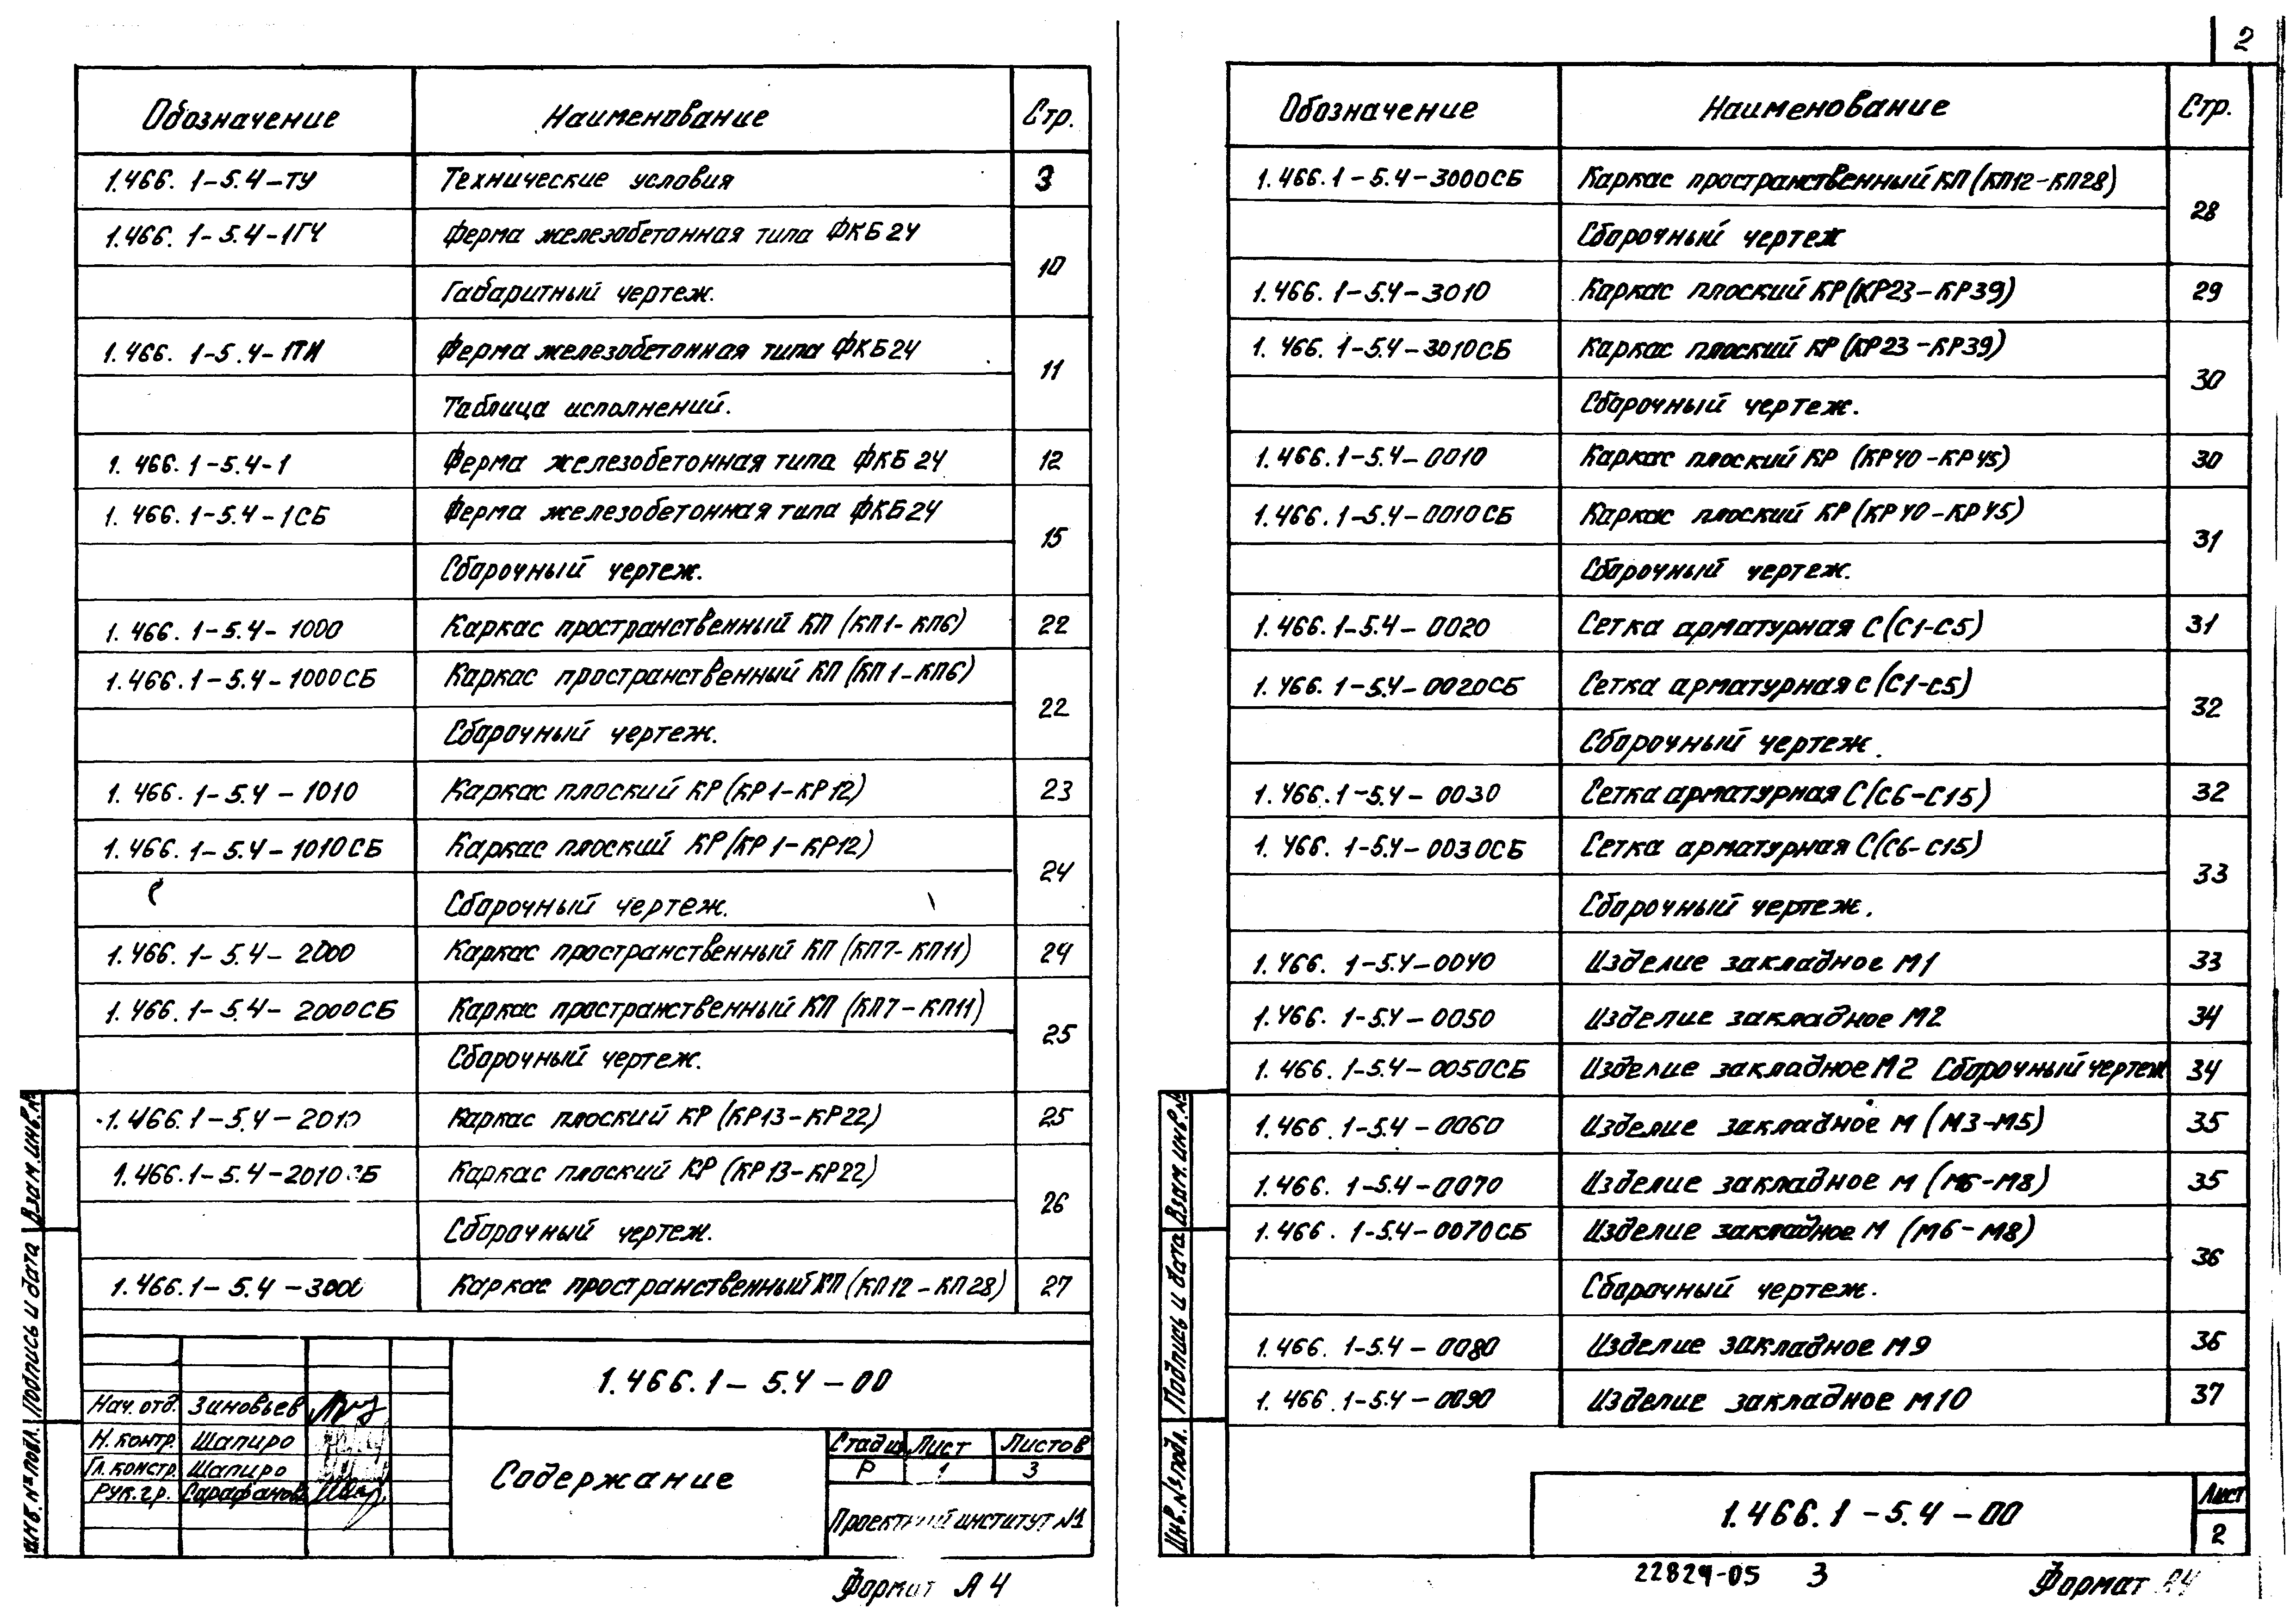 Обозначение Наименование Стр.
1.466.1-5.4-ТУ Технические условия 3
1.466.1-5.4-1ГЧ Ферма железобетонная типа ФКБ24 10
Габаритный чертеж.
1.466.1-5.4-1ТИ Ферма железобетонная типа ФКБ24 11
Таблица исполнений.
1.466.1-5.4-1 Ферма железобетонная типа ФКБ24 12
1.466.1-5.4-1СБ Ферма железобетонная типа ФКБ24 15
Сборочный чертеж.
1.466.1-5.4-1000 Каркас пространственный КП (КП1-КП6) 22
1.466.1-5.4-1000СБ Каркас пространственный КП (КП1-КП6) 22
Сборочный чертеж.
1.466.1-5.4-1010 Каркас плоский КР (КР1-КР12) 23
1.466.1-5.4-1010СБ Каркас плоский КР (КР1-КР12) 24
Сборочный чертеж.
1.466.1-5.4-2000 Каркас пространственный КП (КП7-КП11) 24
1.466.1-5.4-2000СБ Каркас пространственный КП (КП7-КП11) 25
Сборочный чертеж.
1.466.1-5.4-2010 Каркас плоский КР (КР13-КР22) 25
1.466.1-5.4-2010СБ Каркас плоский КР (КР13-КР22) 26
Сборочный чертеж.
1.466.1-5.4-3000 Каркас пространственный КП (КП12-КП28) 27
Взам.инв.№
Подпись и дата
Инв.№ подл.
1.466.1-5.4-00
Нач.отд. Зиновьев
Н.контр. Шапиро
Гл.констр. Шапиро
Рук.гр. Сарафанова
Содержание
Стадия Лист Листов
Р 1 3
Проектный институт №1
Формат А4
2
Обозначение Наименование Стр.
1.466.1-5.4-3000СБ Каркас пространственный КП (КП12-КП28) 28
Сборочный чертеж
1.466.1-5.4-3010 Каркас плоский КР (КР23-КР39) 29
1.466.1-5.4-3010СБ Каркас плоский КР (КР23-КР39) 30
Сборочный чертеж.
1.466.1-5.4-0010 Каркас плоский КР (КР40-КР45) 30
1.466.1-5.4-0010СБ Каркас плоский КР (КР40-КР45) 31
Сборочный чертеж.
1.466.1-5.4-0020 Сетка арматурная С (С1-С5) 31
1.466.1-5.4-0020СБ Сетка арматурная С (С1-С5) 32
Сборочный чертеж.
1.466.1-5.4-0030 Сетка арматурная С (С6-С15) 32
1.466.1-5.4-0030СБ Сетка арматурная С (С6-С15) 33
Сборочный чертеж.
1.466.1-5.4-0040 Изделие закладное М1 33
1.466.1-5.4-0050 Изделие закладное М2 34
1.466.1-5.4-0050СБ Изделие закладное М2 Сборочный чертеж 34
1.466.1-5.4-0060 Изделие закладное М (М3-М5) 35
1.466.1-5.4-0070 Изделие закладное М (М6-М8) 35
1.466.1-5.4-0070СБ Изделие закладное М (М6-М8) 36
Сборочный чертеж.
1.466.1-5.4-0080 Изделие закладное М9 36
1.466.1-5.4-0090 Изделие закладное М10 37
Взам.инв.№
Подпись и дата
Инв.№ подл.
1.466.1-5.4-00
Лист
2
22824-05 3
Формат А4